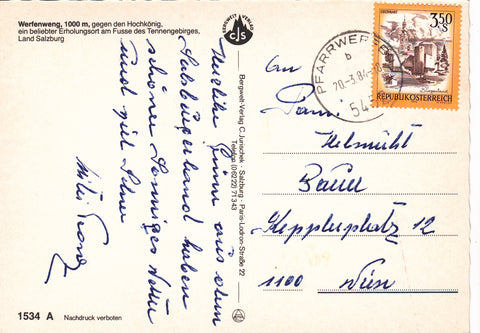 Werfenweng, 1000 m, gegen den Hochkönig,
ein beliebter Erholungsort am Fusse des Tennengebirges,
Land Salzburg
Herzliche Grüße aus dem
Salzburgerland haben
schönes sonniges Wetter
und viel Schnee
1534 A
Nachdruck verboten
BERGWELT VERLAG
CJS
Bergwelt-Verlag C. Jurischek - Salzburg - Paris-Lodron-Straße 22
Telefon (06222) 71343
PFARRWERFEN
b
20.-3.84
54
3,50
S
REPUBLIK ÖSTERREICH
An
Fam.
Helmuth
Bauer
Kepplerplatz 12
1100 Wien